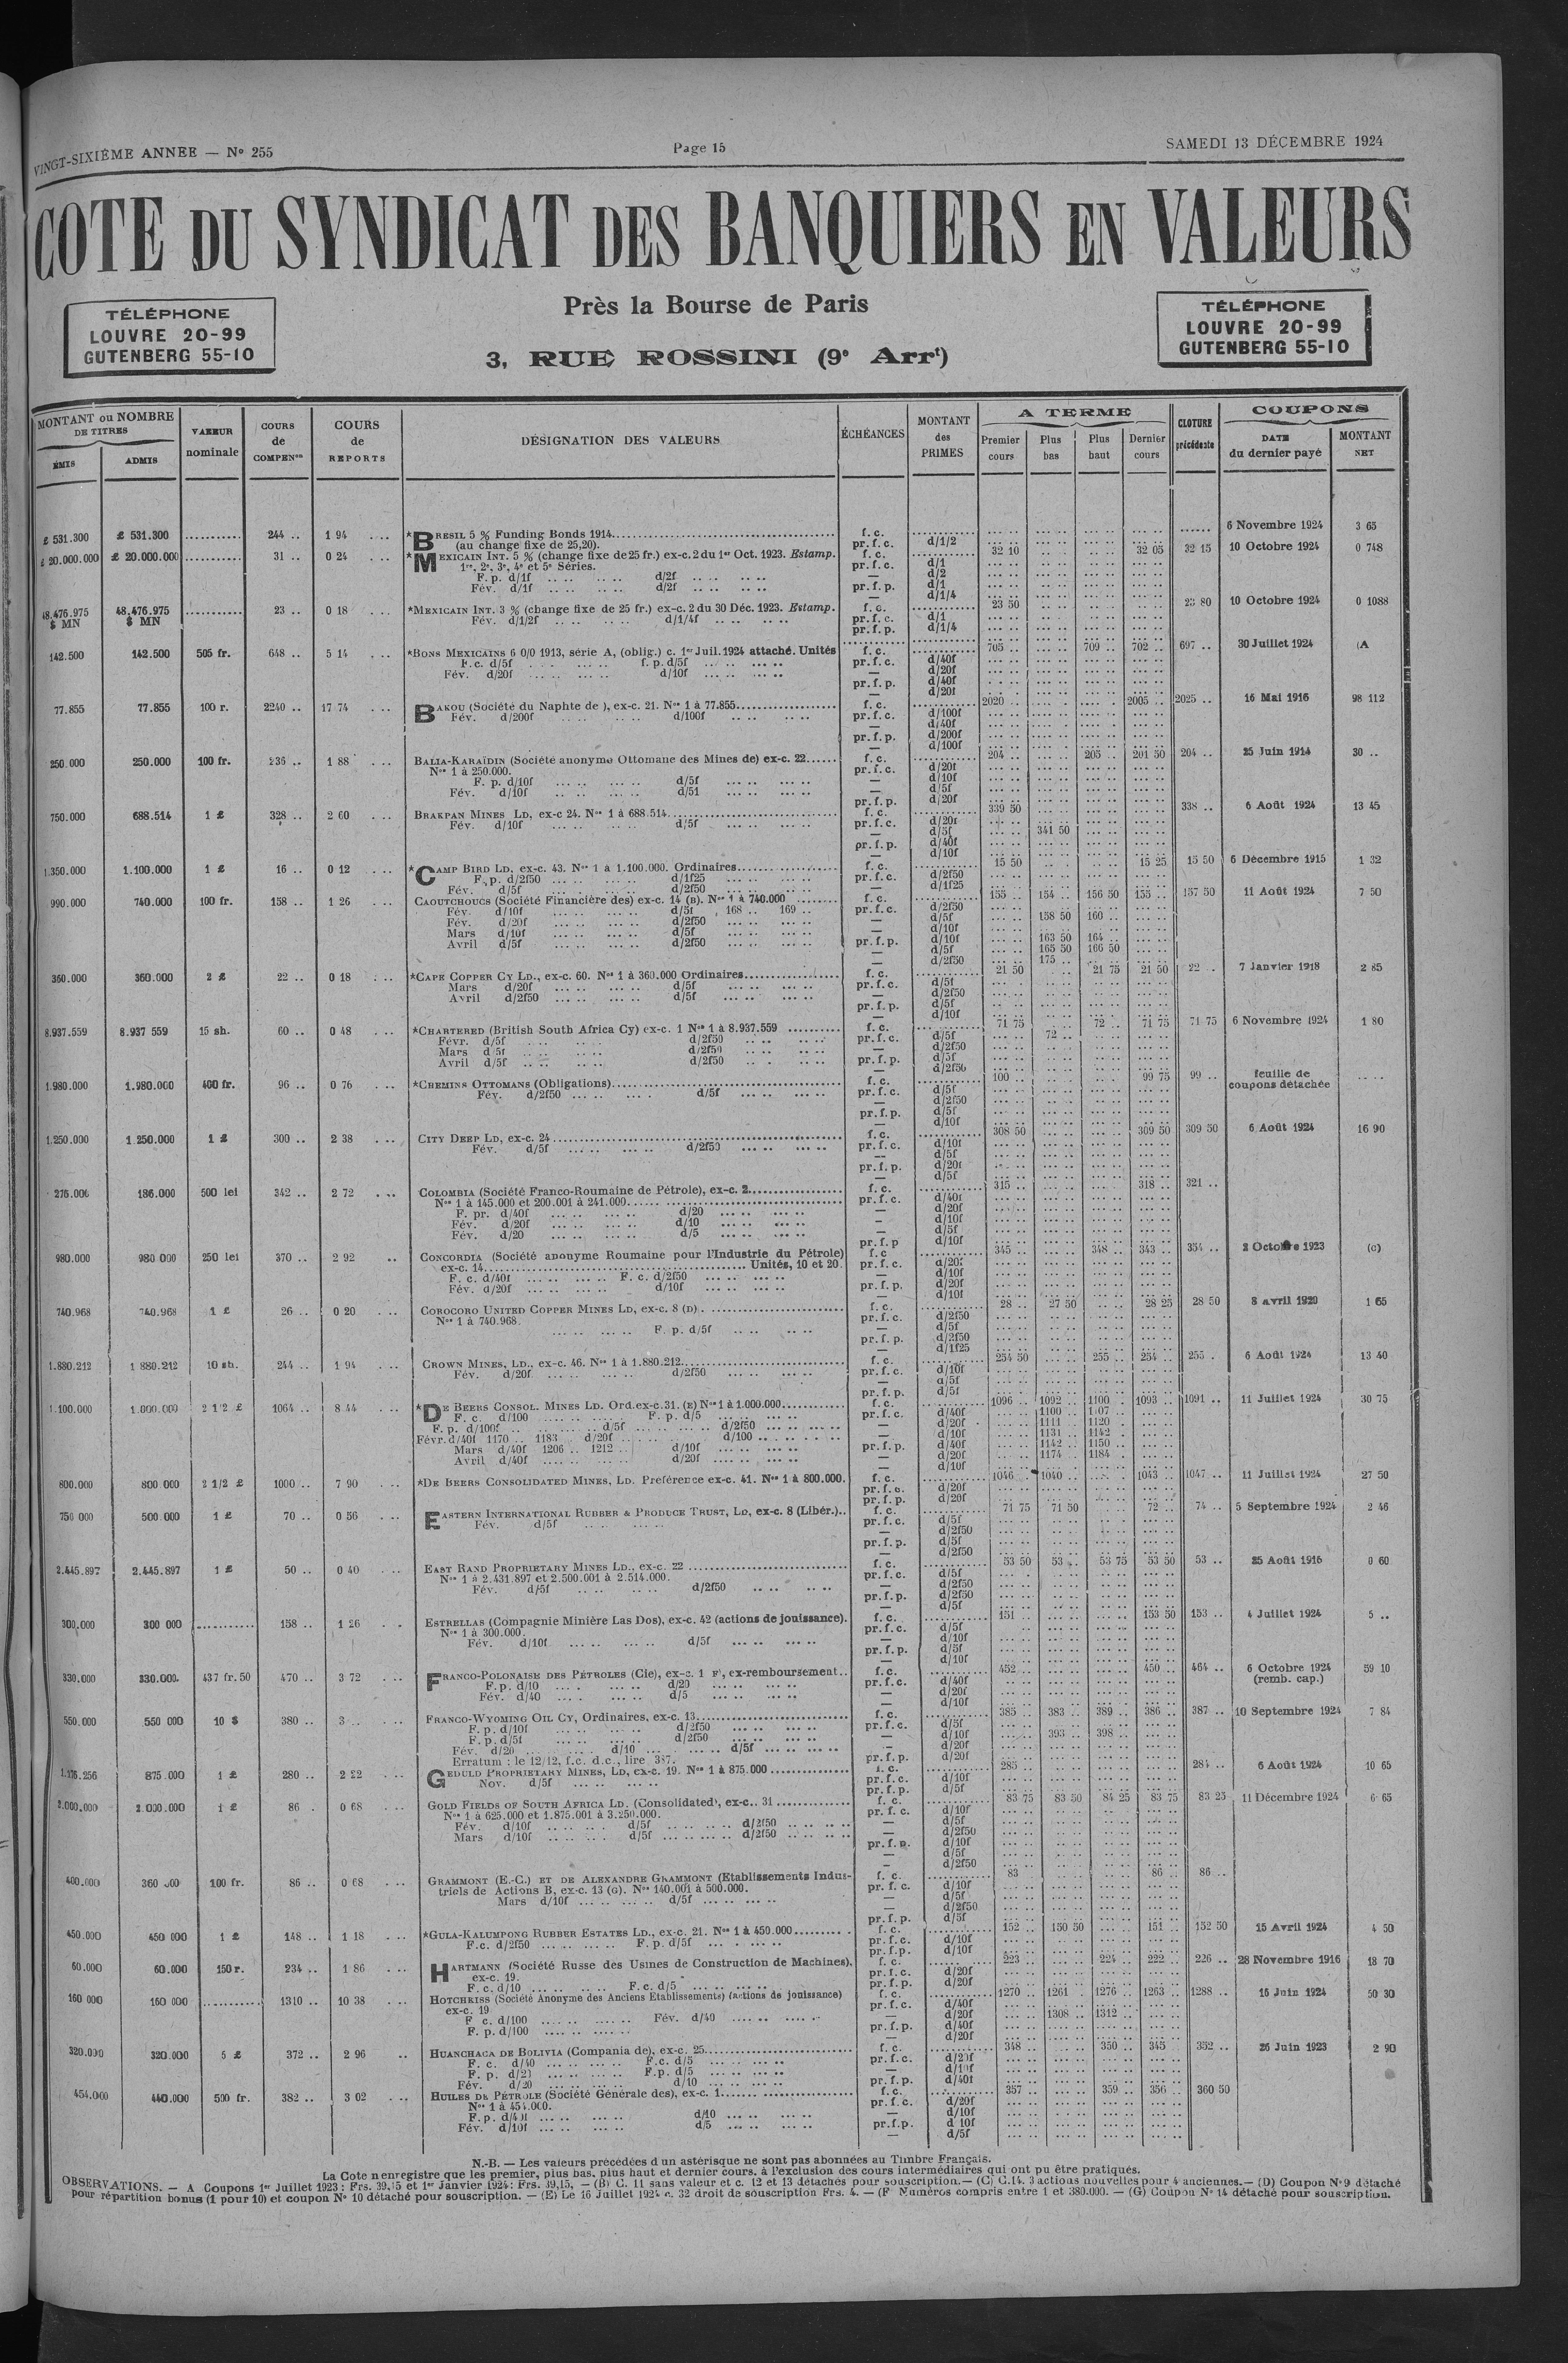 VINGT-SIXIÈME ANNEE — N° 255
Page 15
SAMEDI 13 DÉCEMBRE 1924
COTE DU SYNDICAT DES BANQUIERS EN VALEURS
TÉLÉPHONE
LOUVRE 20-99
GUTENBERG 55-10
Près la Bourse de Paris
3, RUE ROSSINI (9e Arrt)
TÉLÉPHONE
LOUVRE 20-99
GUTENBERG 55-10
MONTANT ou NOMBRE DE TITRES
ÉMIS ADMIS
VALEUR nominale
COURS de COMPENon
COURS de REPORTS
DÉSIGNATION DES VALEURS
ÉCHÉANCES
MONTANT des PRIMES
A TERME
Premier cours Plus bas Plus haut Dernier cours
CLOTURE précédente
COUPONS
DATE du dernier payé MONTANT NET
£ 531.300 £ 531.300 .......... 244 .. 1 94 *BRESIL 5 % Funding Bonds 1914 f. c. 6 Novembre 1924 3 65
(au change fixe de 25,20). pr. f. c. d/1/2
£ 20.000.000 £ 20.000.000 .......... 31 .. 0 24 *MEXICAIN INT. 5 % (change fixe de 25 fr.) ex-c. 2 du 1er Oct. 1923. Estamp. f. c. 32 10 32 05 32 15 10 Octobre 1924 0 748
1re, 2e, 3e, 4e et 5e Séries. pr. f. c. d/1
F. p. d/1f d/2f — d/2
Fév. d/1f d/2f pr. f. p. d/1
d/1/4
48.476.975 $ MN 48.476.975 $ MN .......... 23 .. 0 18 *MEXICAIN INT. 3 % (change fixe de 25 fr.) ex-c. 2 du 30 Déc. 1923. Estamp. f. c. 23 50 23 80 10 Octobre 1924 0 1088
Fév. d/1/2f d/1/4f pr. f. c. d/1
pr. f. p. d/1/4
142.500 142.500 505 fr. 648 .. 5 14 *BONS MEXICAINS 6 0/0 1913, série A, (oblig.) c. 1er Juil. 1924 attaché. Unités f. c. 705 .. 709 .. 702 .. 697 .. 30 Juillet 1924 (A
F. c. d/5f f. p. d/5f pr. f. c. d/40f
Fév. d/20f d/10f — d/20f
pr. f. p. d/40f
— d/20f
77.855 77.855 100 r. 2240 .. 17 74 BAKOU (Société du Naphte de ), ex-c. 21. Nos 1 à 77.855 f. c. 2020 .. 2005 .. 2025 .. 16 Mai 1916 98 112
Fév. d/200f d/100f pr. f. c. d/100f
— d/40f
pr. f. p. d/200f
— d/100f
250.000 250.000 100 fr. 236 .. 1 88 BALIA-KARAÏDIN (Société anonyme Ottomane des Mines de) ex-c. 22 f. c. 204 .. 205 .. 201 50 204 .. 25 Juin 1914 30 ..
Nos 1 à 250.000. pr. f. c. d/20f
F. p. d/10f d/5f — d/10f
Fév. d/10f d/51 — d/5f
pr. f. p. d/20f
750.000 688.514 1 £ 328 .. 2 60 BRAKPAN MINES LD, ex-c 24. Nos 1 à 688.514 f. c. 339 50 338 .. 6 Août 1924 13 45
Fév. d/10f d/5f pr. f. c. d/20f
— d/5f 341 50
pr. f. p. d/40f
— d/10f
1.350.000 1.100.000 1 £ 16 .. 0 12 *CAMP BIRD LD, ex-c. 43. Nos 1 à 1.100.000. Ordinaires f. c. 15 50 15 25 15 50 6 Décembre 1915 1 32
F. p. d/2f50 d/1f25 pr. f. c. d/2f50
Fév. d/5f d/2f50 — d/1f25
990.000 740.000 100 fr. 158 .. 1 26 CAOUTCHOUCS (Société Financière des) ex-c. 14 (B). Nos 1 à 740.000 f. c. 155 .. 154 .. 156 50 155 .. 157 50 11 Août 1924 7 50
Fév. d/10f d/5f 168 .. 169 .. pr. f. c. d/2f50
Fév. d/20f d/2f50 — d/5f 158 50 160 ..
Mars d/10f d/5f — d/10f
Avril d/5f d/2f50 pr. f. p. d/10f 163 50 164 ..
— d/5f 165 50 166 50
— d/2f50 175 ..
360.000 360.000 2 £ 22 .. 0 18 *CAPE COPPER CY LD., ex-c. 60. Nos 1 à 360.000 Ordinaires f. c. 21 50 21 75 21 50 22 .. 7 Janvier 1918 2 85
Mars d/20f d/5f pr. f. c. d/5f
Avril d/2f50 d/5f — d/2f50
pr. f. p. d/5f
— d/10f
8.937.559 8.937 559 15 sh. 60 .. 0 48 *CHARTERED (British South Africa Cy) ex-c. 1 Nos 1 à 8.937.559 f. c. 71 75 72 .. 71 75 71 75 6 Novembre 1924 1 80
Févr. d/5f d/2f50 pr. f. c. d/5f 72 ..
Mars d/5f d/2f50 — d/2f50
Avril d/5f d/2f50 pr. f. p. d/5f
— d/2f50
1.980.000 1.980.000 400 fr. 96 .. 0 76 *CHEMINS OTTOMANS (Obligations) f. c. 100 .. 99 75 99 .. feuille de coupons détachée
Fév. d/2f50 d/5f pr. f. c. d/5f
— d/2f50
pr. f. p. d/5f
— d/10f
1.250.000 1.250.000 1 £ 300 .. 2 38 CITY DEEP LD, ex-c. 24 f. c. 308 50 309 50 309 50 6 Août 1924 16 90
Fév. d/5f d/2f50 pr. f. c. d/10f
— d/5f
pr. f. p. d/20f
— d/5f
275.000 186.000 500 lei 342 .. 2 72 COLOMBIA (Société Franco-Roumaine de Pétrole), ex-c. 2 f. c. 315 .. 318 .. 321 ..
Nos 1 à 145.000 et 200.001 à 241.000 pr. f. c. d/40f
F. pr. d/40f d/20 — d/20f
Fév. d/20f d/10 — d/10f
Fév. d/20 d/5 — d/5f
pr. f. p d/10f
980.000 980 000 250 lei 370 .. 2 92 CONCORDIA (Société anonyme Roumaine pour l'Industrie du Pétrole) f. c 345 .. 348 .. 343 .. 354 .. 2 Octobre 1923 (C)
ex-c. 14 Unités, 10 et 20. pr. f. c. d/20f
F. c. d/40f F. c. d/2f50 — d/10f
Fév. d/20f d/10f pr. f. p. d/20f
— d/10f
740.968 740.968 1 £ 26 .. 0 20 COROCORO UNITED COPPER MINES LD, ex-c. 8 (D) f. c. 28 .. 27 50 28 25 28 50 8 avril 1920 1 65
Nos 1 à 740.968. pr. f. c. d/2f50
F. p. d/5f — d/5f
pr. f. p. d/2f50
— d/1f25
1.880.212 1 880.212 10 sh. 244 .. 1 94 CROWN MINES, LD., ex-c. 46. Nos 1 à 1.880.212 f. c. 254 50 255 .. 254 .. 255 . 6 Août 1924 13 40
Fév. d/20f d/2f50 pr. f. c. d/10f
— d/5f
pr. f. p. d/5f
1.100.000 1.000.000 2 1/2 £ 1064 .. 8 44 *DE BEERS CONSOL. MINES LD. Ord. ex-c. 31. (E) Nos 1 à 1.000.000 f. c. 1096 .. 1092 .. 1100 1093 .. 1091 .. 11 Juillet 1924 30 75
F. c. d/100 F. p. d/5 pr. f. c. d/40f 1100 .. 1107 ..
F. p. d/100f d/5f d/2f50 — d/20f 1111 1120 .
Févr. d/40f 1170 .. 1183 d/20f d/100 — d/10f 1131 .. 1142
Mars d/40f 1206 .. 1212 .. d/10f pr. f. p. d/40f 1142 .. 1150 .
Avril d/40f d/20f — d/20f 1174 1184 .
— d/10f
800.000 800 000 2 1/2 £ 1000 .. 7 90 *DE BEERS CONSOLIDATED MINES, LD. Preférence ex-c. 41. Nos 1 à 800.000. f. c. 1046 .. 1040 .. 1043 .. 1047 .. 11 Juillet 1924 27 50
pr. f. c. d/20f
pr. f. p. d/20f
750 000 500.000 1 £ 70 .. 0 56 EASTERN INTERNATIONAL RUBBER & PRODUCE TRUST, LD, ex-c. 8 (Libér.) f. c. 71 75 71 50 72 .. 74 .. 5 Septembre 1924 2 46
Fév. d/5f pr. f. c. d/5f
— d/2f50
pr. f. p. d/5f
— d/2f50
2.445.897 2.445.897 1 £ 50 .. 0 40 EAST RAND PROPRIETARY MINES LD., ex-c. 22 f. c. 53 50 53 .. 53 75 53 50 53 .. 25 Août 1916 0 60
Nos 1 à 2.431.897 et 2.500.001 à 2.514.000. pr. f. c. d/5f
Fév. d/5f d/2f50 — d/2f50
pr. f. p. d/2f50
— d/5f
300.000 300 000 .......... 158 .. 1 26 ESTRELLAS (Compagnie Minière Las Dos), ex-c. 42 (actions de jouissance). f. c. 151 .. 153 50 153 .. 4 Juillet 1924 5 ..
Nos 1 à 300.000. pr. f. c. d/5f
Fév. d/10f d/5f — d/10f
pr. f. p. d/5f
— d/10f
330.000 330.000 437 fr. 50 470 .. 3 72 FRANCO-POLONAISE DES PÉTROLES (Cie), ex-c. 1 F), ex-remboursement f. c. 452 .. 450 .. 464 .. 6 Octobre 1924 (remb. cap.) 59 10
F. p. d/10 d/20 pr. f. c. d/40f
Fév. d/40 d/5 — d/20f
— d/10f
550.000 550 000 10 $ 380 .. 3 .. FRANCO-WYOMING OIL CY, Ordinaires, ex-c. 13 f. c. 385 .. 383 .. 389 .. 386 .. 387 .. 10 Septembre 1924 7 84
F. p. d/10f d/2f50 pr. f. c. d/5f
F. p. d/5f d/2f50 — d/10f 393 .. 398 ..
Fév. d/20 d/10 d/5f — d/20f
Erratum : le 12/12, f.c. d.c., lire 387. pr. f. p. d/20f
875.000 1 £ 280 .. 2 22 GEDULD PROPRIETARY MINES, LD, ex-c. 19. Nos 1 à 875.000 f. c. 285 .. 284 .. 6 Août 1924 10 65
Nov. d/5f pr. f. c. d/10f
pr. f. p. d/5f
2.000.000 2.000.000 1 £ 86 . 0 68 GOLD FIELDS OF SOUTH AFRICA LD. (Consolidated), ex-c.. 31 f. c. 83 75 83 50 84 25 83 75 83 25 11 Décembre 1924 6 65
Nos 1 à 625.000 et 1.875.001 à 3.250.000. pr. f. c. d/10f
Fév. d/10f d/5f d/2f50 — d/5f
Mars d/10f d/5f d/2f50 — d/2f50
pr. f. p. d/10f
— d/5f
— d/2f50
400.000 360 000 100 fr. 86 .. 0 68 GRAMMONT (E.-C.) ET DE ALEXANDRE GRAMMONT (Etablissements Indus- f. c. 83 86 .. 86 ..
triels de Actions B, ex-c. 13 (G). Nos 140.001 à 500.000. pr. f. c. d/10f
Mars d/10f d/5f — d/5f
— d/2f50
pr. f. p. d/5f
450.000 450 000 1 £ 148 .. 1 18 *GULA-KALUMPONG RUBBER ESTATES LD., ex-c. 21. Nos 1 à 450.000 f. c. 152 .. 150 50 151 .. 152 50 15 Avril 1924 4 50
F.c. d/2f50 F. p. d/5f pr. f. c. d/10f
pr. f. p. d/10f
60.000 60.000 150 r. 234 .. 1 86 HARTMANN (Société Russe des Usines de Construction de Machines), f. c. 223 .. 224 .. 222 .. 226 .. 28 Novembre 1916 18 70
ex-c. 19. pr. f. c. d/20f
F. c. d/10 F. c. d/5 pr. f. p. d/20f
160 000 160 000 .......... 1310 .. 10 38 HOTCHKISS (Société Anonyme des Anciens Etablissements) (actions de jouissance) f. c. 1270 .. 1261 1276 .. 1263 .. 1288 .. 16 Juin 1924 50 30
ex-c. 19 pr. f. c. d/40f
F c. d/100 Fév. d/40 — d/20f 1308 .. 1312 ..
F. p. d/100 pr. f. p. d/40f
— d/20f
320.000 320.000 5 £ 372 .. 2 96 HUANCHACA DE BOLIVIA (Compania de), ex-c. 25 f. c. 348 .. 350 .. 345 .. 352 .. 26 Juin 1923 2 90
F. c. d/40 F.c. d/5 pr. f. c. d/20f
F. p. d/20 F.p. d/5 — d/10f
Fév. d/20 d/10 pr. f. p. d/40f
454.000 440.000 500 fr. 382 .. 3 02 HUILES DE PÉTROLE (Société Générale des), ex-c. 1 f. c. 357 .. 359 .. 356 .. 360 50
Nos 1 à 454.000. pr. f. c. d/20f
F. p. d/40f d/10 — d/10f
Fév. d/10f d/5 pr. f. p. d 10f
— d/5f
N.-B. — Les valeurs précédées d'un astérisque ne sont pas abonnées au Timbre Français.
La Cote n'enregistre que les premier, plus bas, plus haut et dernier cours, à l'exclusion des cours intermédiaires qui ont pu être pratiqués.
OBSERVATIONS. — A Coupons 1er Juillet 1923 : Frs. 39,15 et 1er Janvier 1924 : Frs. 39,15, — (B) C. 11 sans valeur et c. 12 et 13 détachés pour souscription. — (C) C.14. 3 actions nouvelles pour 4 anciennes. — (D) Coupon N° 9 détaché
pour répartition bonus (1 pour 10) et coupon N° 10 détaché pour souscription. — (E) Le 16 Juillet 1924 c. 32 droit de souscription Frs. 4. — (F Numéros compris entre 1 et 380.000. — (G) Coupon N° 14 détaché pour souscription.